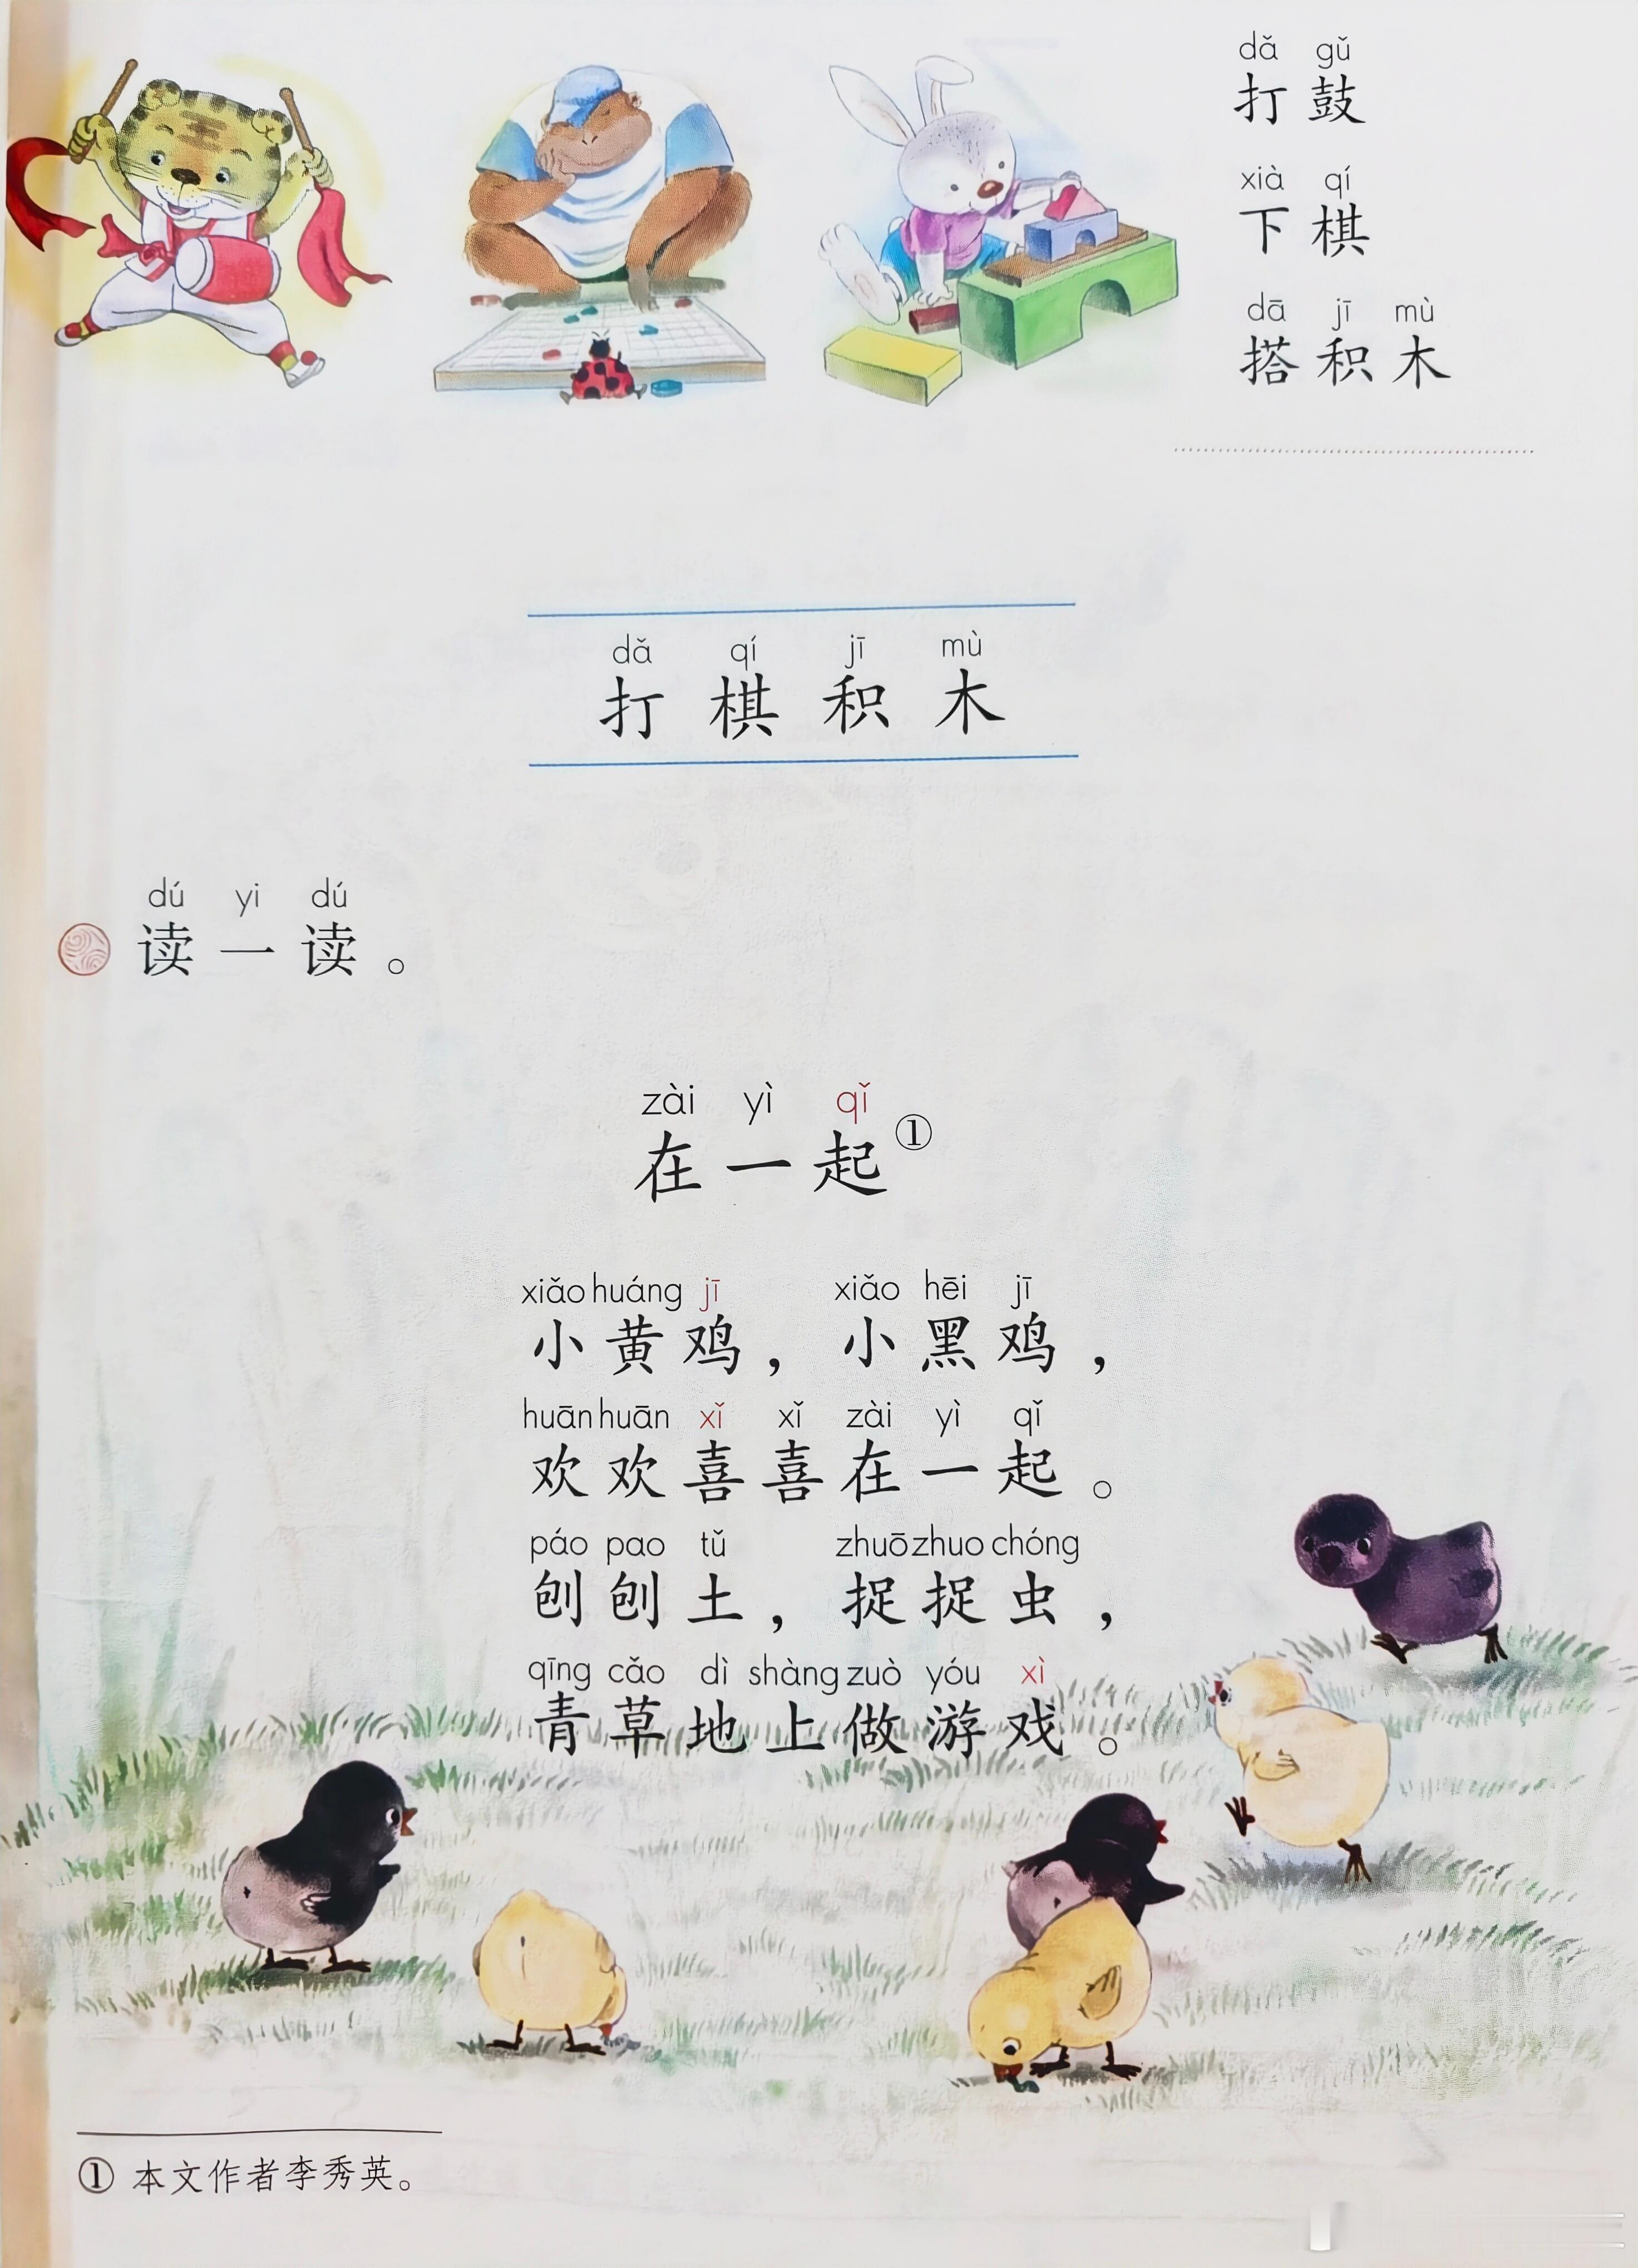 dǎ gǔ
打鼓
xià qí
下棋
dā jī mù
搭积木
dǎ qí jī mù
打棋积木
dú yi dú
读一读。
zài yì qǐ
在一起①
xiǎo huáng jī xiǎo hēi jī
小黄鸡，小黑鸡，
huān huān xǐ xǐ zài yì qǐ
欢欢喜喜在一起。
páo pao tǔ zhuō zhuo chóng
刨刨土，捉捉虫，
qīng cǎo dì shàng zuò yóu xì
青草地上做游戏。
① 本文作者李秀英。